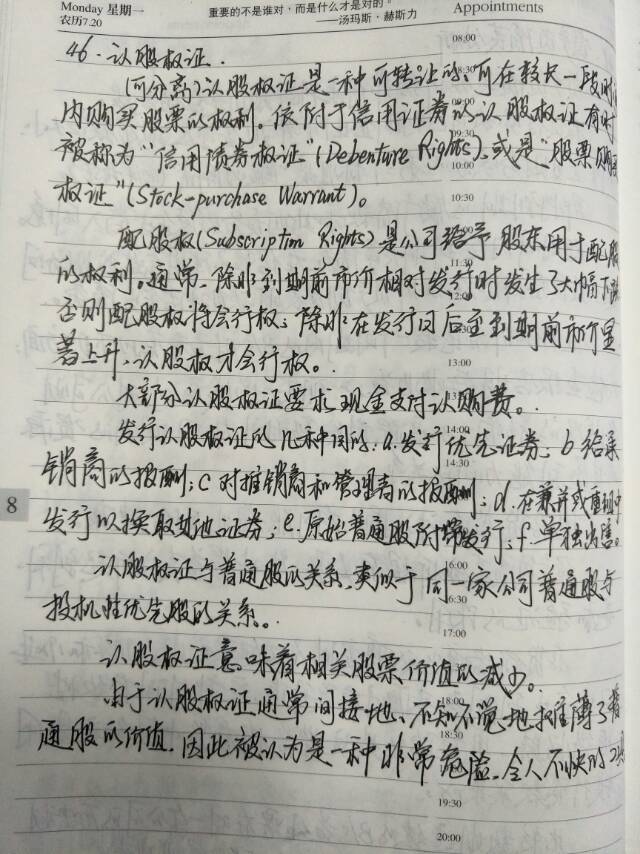 Monday 星期一
农历7.20
重要的不是谁对，而是什么才是对的。
——汤玛斯·赫斯力
Appointments
08:00
46.认股权证.
(可分离)认股权证是一种可转让的、可在较长一段时
内购买股票的权利。依附于信用证券的认股权证有时
09:30
被称为“信用债券权证”(Debenture Rights)、或是“股票购买
10:00
权证”(Stock-purchase Warrant)。
10:30
配股权(Subscription Rights)是公司给予股东用于配股
11:30
的权利。通常、除非到期前市价相对发行时发生了大幅下跌
12:00
否则配股权将会行权；除非在发行日后至到期前市价显
著上升、认股权才会行权。
13:00
大部分认股权证要求现金支付认购费。
14:00
发行认股权证的几种目的：a.发行优先证券；b给承
14:30
销商的报酬；c对推销商和管理者的报酬；d.在兼并或重组中
发行以换取其他证券；e.原始普通股附带发行；f.单独出售。
8
16:00
认股权证与普通股的关系、类似于同一家公司普通股与
16:30
投机性优先股的关系。
17:00
认股权证意味着相关股票价值的减少。
18:00
由于认股权证通常间接地、不知不觉地摊薄了普
18:30
通股的价值，因此被认为是一种非常危险、令人不快的
19:30
20:00